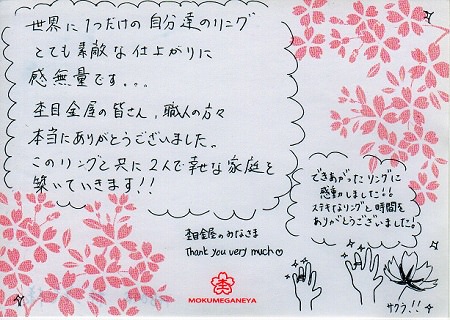 世界に1つだけの自分達のリング
とても素敵な仕上がりに
感無量です。。。
杢目金屋の皆さん、職人の方々
本当にありがとうございました。
このリングと共に2人で幸せな家庭を
築いていきます!!
できあがったリングに
感動しました!!
ステキなリングと時間を
ありがとうございました!
杢目金屋のみなさま
Thank you very much♡
サクラ!!
MOKUMEGANEYA